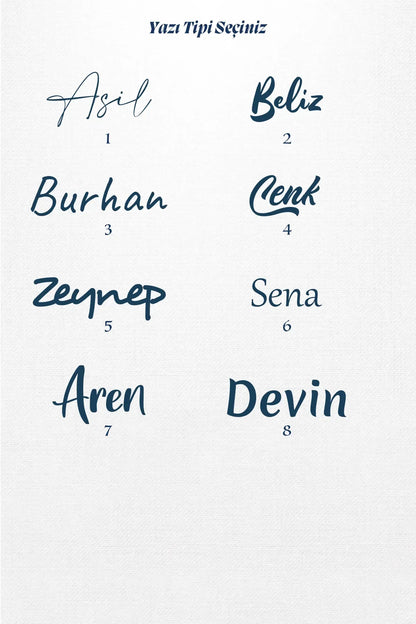 Yazı Tipi Seçiniz
Asil Beliz
1 2
Burhan Cenk
3 4
Zeynep Sena
5 6
Aren Devin
7 8